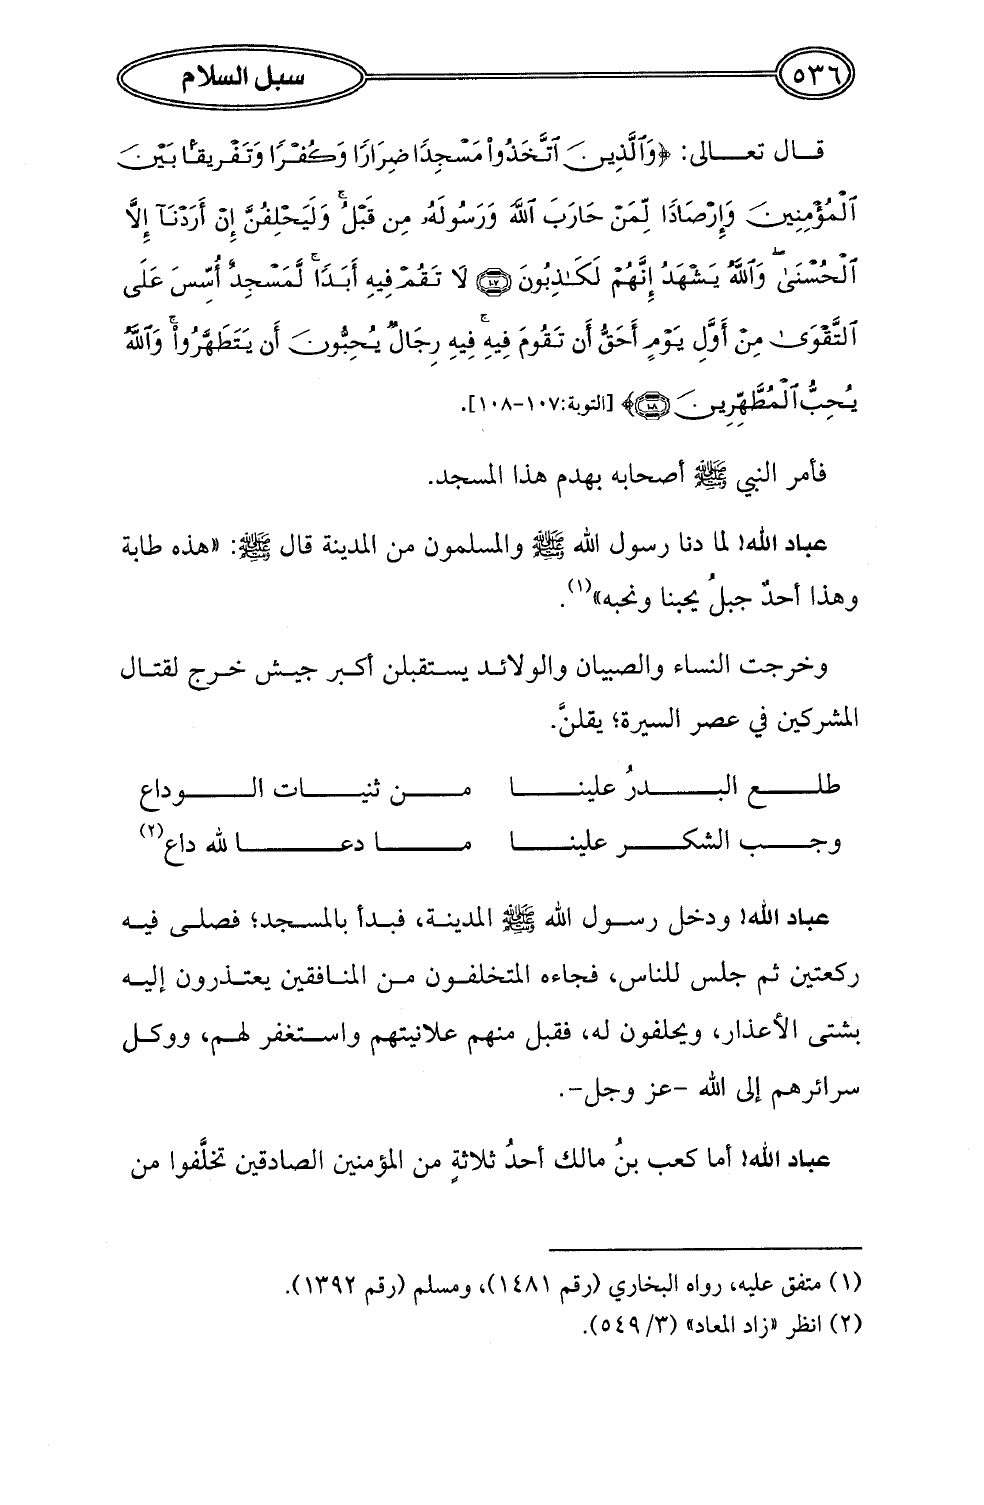 ٥٣٦
سبل السلام
قال تعالى: ﴿وَٱلَّذِينَ ٱتَّخَذُواْ مَسْجِدًا ضِرَارًا وَكُفْرًا وَتَفْرِيقًۢا بَيْنَ
ٱلْمُؤْمِنِينَ وَإِرْصَادًا لِّمَنْ حَارَبَ ٱللَّهَ وَرَسُولَهُۥ مِن قَبْلُ ۚ وَلَيَحْلِفُنَّ إِنْ أَرَدْنَآ إِلَّا
ٱلْحُسْنَىٰ ۖ وَٱللَّهُ يَشْهَدُ إِنَّهُمْ لَكَـٰذِبُونَ ۝١٠٧ لَا تَقُمْ فِيهِ أَبَدًا ۚ لَّمَسْجِدٌ أُسِّسَ عَلَى
ٱلتَّقْوَىٰ مِنْ أَوَّلِ يَوْمٍ أَحَقُّ أَن تَقُومَ فِيهِ ۚ فِيهِ رِجَالٌ يُحِبُّونَ أَن يَتَطَهَّرُواْ ۚ وَٱللَّهُ
يُحِبُّ ٱلْمُطَّهِّرِينَ ۝١٠٨﴾ [التوبة:١٠٧-١٠٨].
فأمر النبي ﷺ أصحابه بهدم هذا المسجد.
عباد الله! لما دنا رسول الله ﷺ والمسلمون من المدينة قال ﷺ: «هذه طابة
وهذا أحدٌ جبلُ يحبنا ونحبه»(١).
وخرجت النساء والصبيان والولائد يستقبلن أكبر جيش خرج لقتال
المشركين في عصر السيرة؛ يقلنَّ.
طلع البدرُ علينا من ثنيات الوداع
وجب الشكر علينا ما دعا لله داع(٢)
عباد الله! ودخل رسول الله ﷺ المدينة، فبدأ بالمسجد؛ فصلى فيه
ركعتين ثم جلس للناس، فجاءه المتخلفون من المنافقين يعتذرون إليه
بشتى الأعذار، ويحلفون له، فقبل منهم علانيتهم واستغفر لهم، ووكل
سرائرهم إلى الله -عز وجل-.
عباد الله! أما كعب بنُ مالك أحدُ ثلاثةٍ من المؤمنين الصادقين تخلَّفوا من
(١) متفق عليه، رواه البخاري (رقم ١٤٨١)، ومسلم (رقم ١٣٩٢).
(٢) انظر «زاد المعاد» (٣/ ٥٤٩).